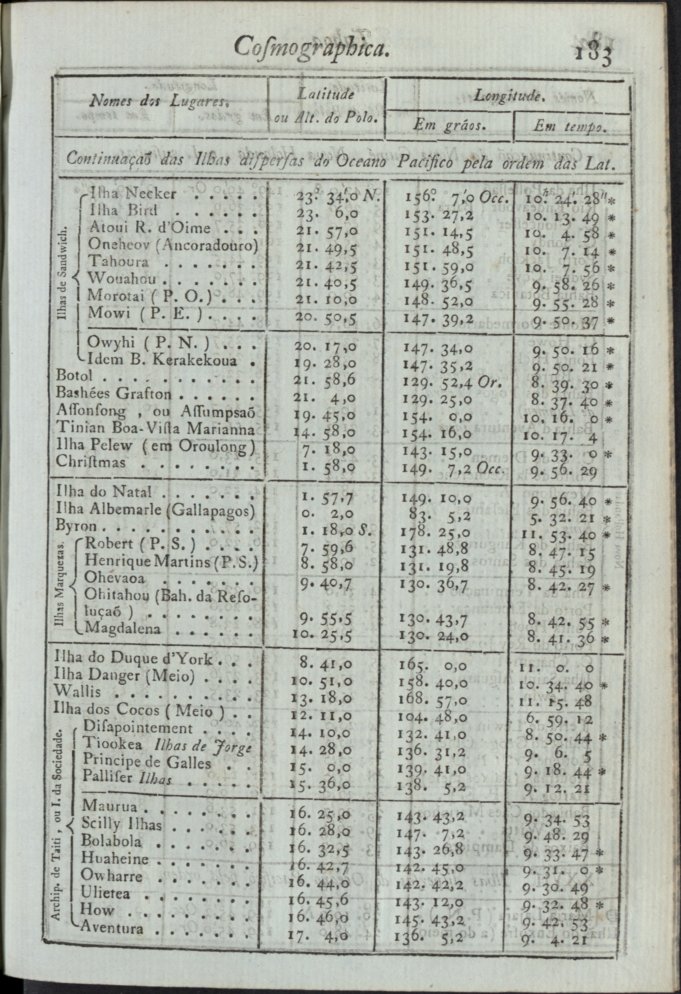 Coſmographica. 183
Nomes dos Lugares. Latitude ou Alt. do Polo. Longitude.
Em gráos. Em tempo.
Continuaçaõ das Ilhas diſperſas do Oceano Pacifico pela ordem das Lat.
Ilhas de Sandwich.
Ilha Necker . . . . . 23. 34,0 N. 156°. 7,0 Occ. 10.h 24.' 28" *
Ilha Bird . . . . . 23. 6,0 153. 27,2 10. 13. 49 *
Atoui R. d'Oime . . . 21. 57,0 151. 14,5 10. 4. 58 *
Oneheov (Ancoradouro) 21. 49,5 151. 48,5 10. 7. 14 *
Tahoura . . . . . . 21. 42,5 151. 59,0 10. 7. 56 *
Wouahou . . . . . . 21. 40,5 149. 36,5 9. 58. 26 *
Morotai ( P. O. ) . . . 21. 10,0 148. 52,0 9. 55. 28 *
Mowi ( P. E. ) . . . . 20. 50,5 147. 39,2 9. 50. 37 *
Owyhi ( P. N. ) . . . 20. 17,0 147. 34,0 9. 50. 16 *
Idem B. Kerakekoua . 19. 28,0 147. 35,2 9. 50. 21 *
Botol . . . . . . . . 21. 58,6 129. 52,4 Or. 8. 39. 30 *
Bashées Grafton . . . . . . 21. 4,0 129. 25,0 8. 37. 40 *
Aſſonſong , ou Aſſumpsaõ 19. 45,0 154. 0,0 10. 16. 0 *
Tinian Boa-Viſta Marianna 14. 58,0 154. 16,0 10. 17. 4
Ilha Pelew ( em Oroulong ) 7. 18,0 143. 15,0 9. 33. 0 *
Chriſtmas . . . . . . . 1. 58,0 149. 7,2 Occ. 9. 56. 29
Ilha do Natal . . . . . . 1. 57,7 149. 10,0 9. 56. 40 *
Ilha Albemarle (Gallapagos) 0. 2,0 83. 5,2 5. 32. 21 *
Byron . . . . . . . . . 1. 18,0 S. 178. 25,0 11. 53. 40 *
Ilhas Marquezas.
Robert ( P. S. ) . . . . 7. 59,6 131. 48,8 8. 47. 15
Henrique Martins (P. S.) 8. 58,0 131. 19,8 8. 45. 19
Ohevaoa . . . . . . 9. 40,7 130. 36,7 8. 42. 27 *
Ohitahou (Bah. da Reſo-
luçaõ ) . . . . . . . 9. 55,5 130. 43,7 8. 42. 55 *
Magdalena . . . . . 10. 25,5 130. 24,0 8. 41. 36 *
Ilha do Duque d'York . . . 8. 41,0 165. 0,0 11. 0. 0
Ilha Danger (Meio) . . . . 10. 51,0 158. 40,0 10. 34. 40 *
Wallis . . . . . . . . . 13. 18,0 168. 57,0 11. 15. 48
Ilha dos Cocos ( Meio ) . . 12. 11,0 104. 48,0 6. 59. 12
Archip. de Taiti , ou I. da Sociedade.
Diſapointement . . . . 14. 10,0 132. 41,0 8. 50. 44 *
Tiookea Ilhas de Jorge 14. 28,0 136. 31,2 9. 6. 5
Principe de Galles . . 15. 0,0 139. 41,0 9. 18. 44 *
Palliſer Ilhas . . . . . 15. 36,0 138. 5,2 9. 12. 21
Maurua . . . . . . . 16. 25,0 143. 43,2 9. 34. 53
Scilly Ilhas . . . . . . 16. 28,0 147. 7,2 9. 48. 29
Bolabola . . . . . . . 16. 32,5 143. 26,8 9. 33. 47 *
Huaheine . . . . . . 16. 42,7 142. 45,0 9. 31. 0 *
Owharre . . . . . . 16. 44,0 142. 42,2 9. 30. 49
Ulietea . . . . . . . 16. 45,6 143. 12,0 9. 32. 48 *
How . . . . . . . . 16. 46,0 145. 43,2 9. 42. 53
Aventura . . . . . . 17. 4,0 136. 5,2 9. 4. 21